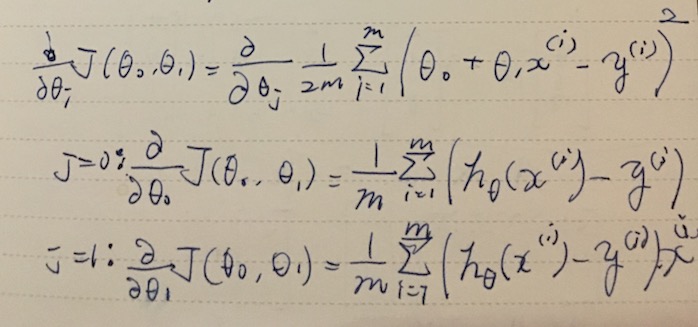 ∂/∂θⱼ J(θ₀,θ₁) = ∂/∂θⱼ 1/2m ∑ᵢ₌₁ᵐ (θ₀ + θ₁x⁽ⁱ⁾ - y⁽ⁱ⁾)²
j=0: ∂/∂θ₀ J(θ₀, θ₁) = 1/m ∑ᵢ₌₁ᵐ (h_θ(x⁽ⁱ⁾) - y⁽ⁱ⁾)
j=1: ∂/∂θ₁ J(θ₀, θ₁) = 1/m ∑ᵢ₌₁ᵐ (h_θ(x⁽ⁱ⁾) - y⁽ⁱ⁾)·x⁽ⁱ⁾